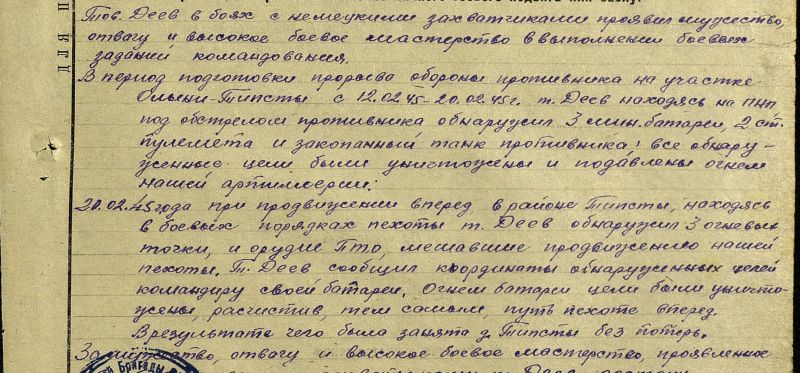 Тов. Деев в боях с немецкими захватчиками проявил мужество,
отвагу и высокое боевое мастерство в выполнении боевых
заданий командования.
В период подготовки прорыва обороны противника на участке
Олыни-Типсты с 12.02.45-20.02.45г. т. Деев находясь на ПНП
под обстрелом противника обнаружил 3 мин. батареи, 2 ст.
пулемета и закопанный танк противника! все обнару-
женные цели были уничтожены и подавлены огнем
нашей артиллерии:
20.02.45 года при продвижении вперед, в районе Типсты, находясь
в боевых порядках пехоты т. Деев обнаружил 3 огневых
точки, и орудие ПТО, мешавшие продвижению нашей
пехоты. Т. Деев сообщил координаты обнаруженных целей
командиру своей батареи. Огнем батареи цели были уничто-
жены, расчистив, тем самым, путь пехоте вперед.
В результате чего была занята д. Типсты без потерь.
За мужество, отвагу и высокое боевое мастерство, проявленное
Бригады
т. Деев